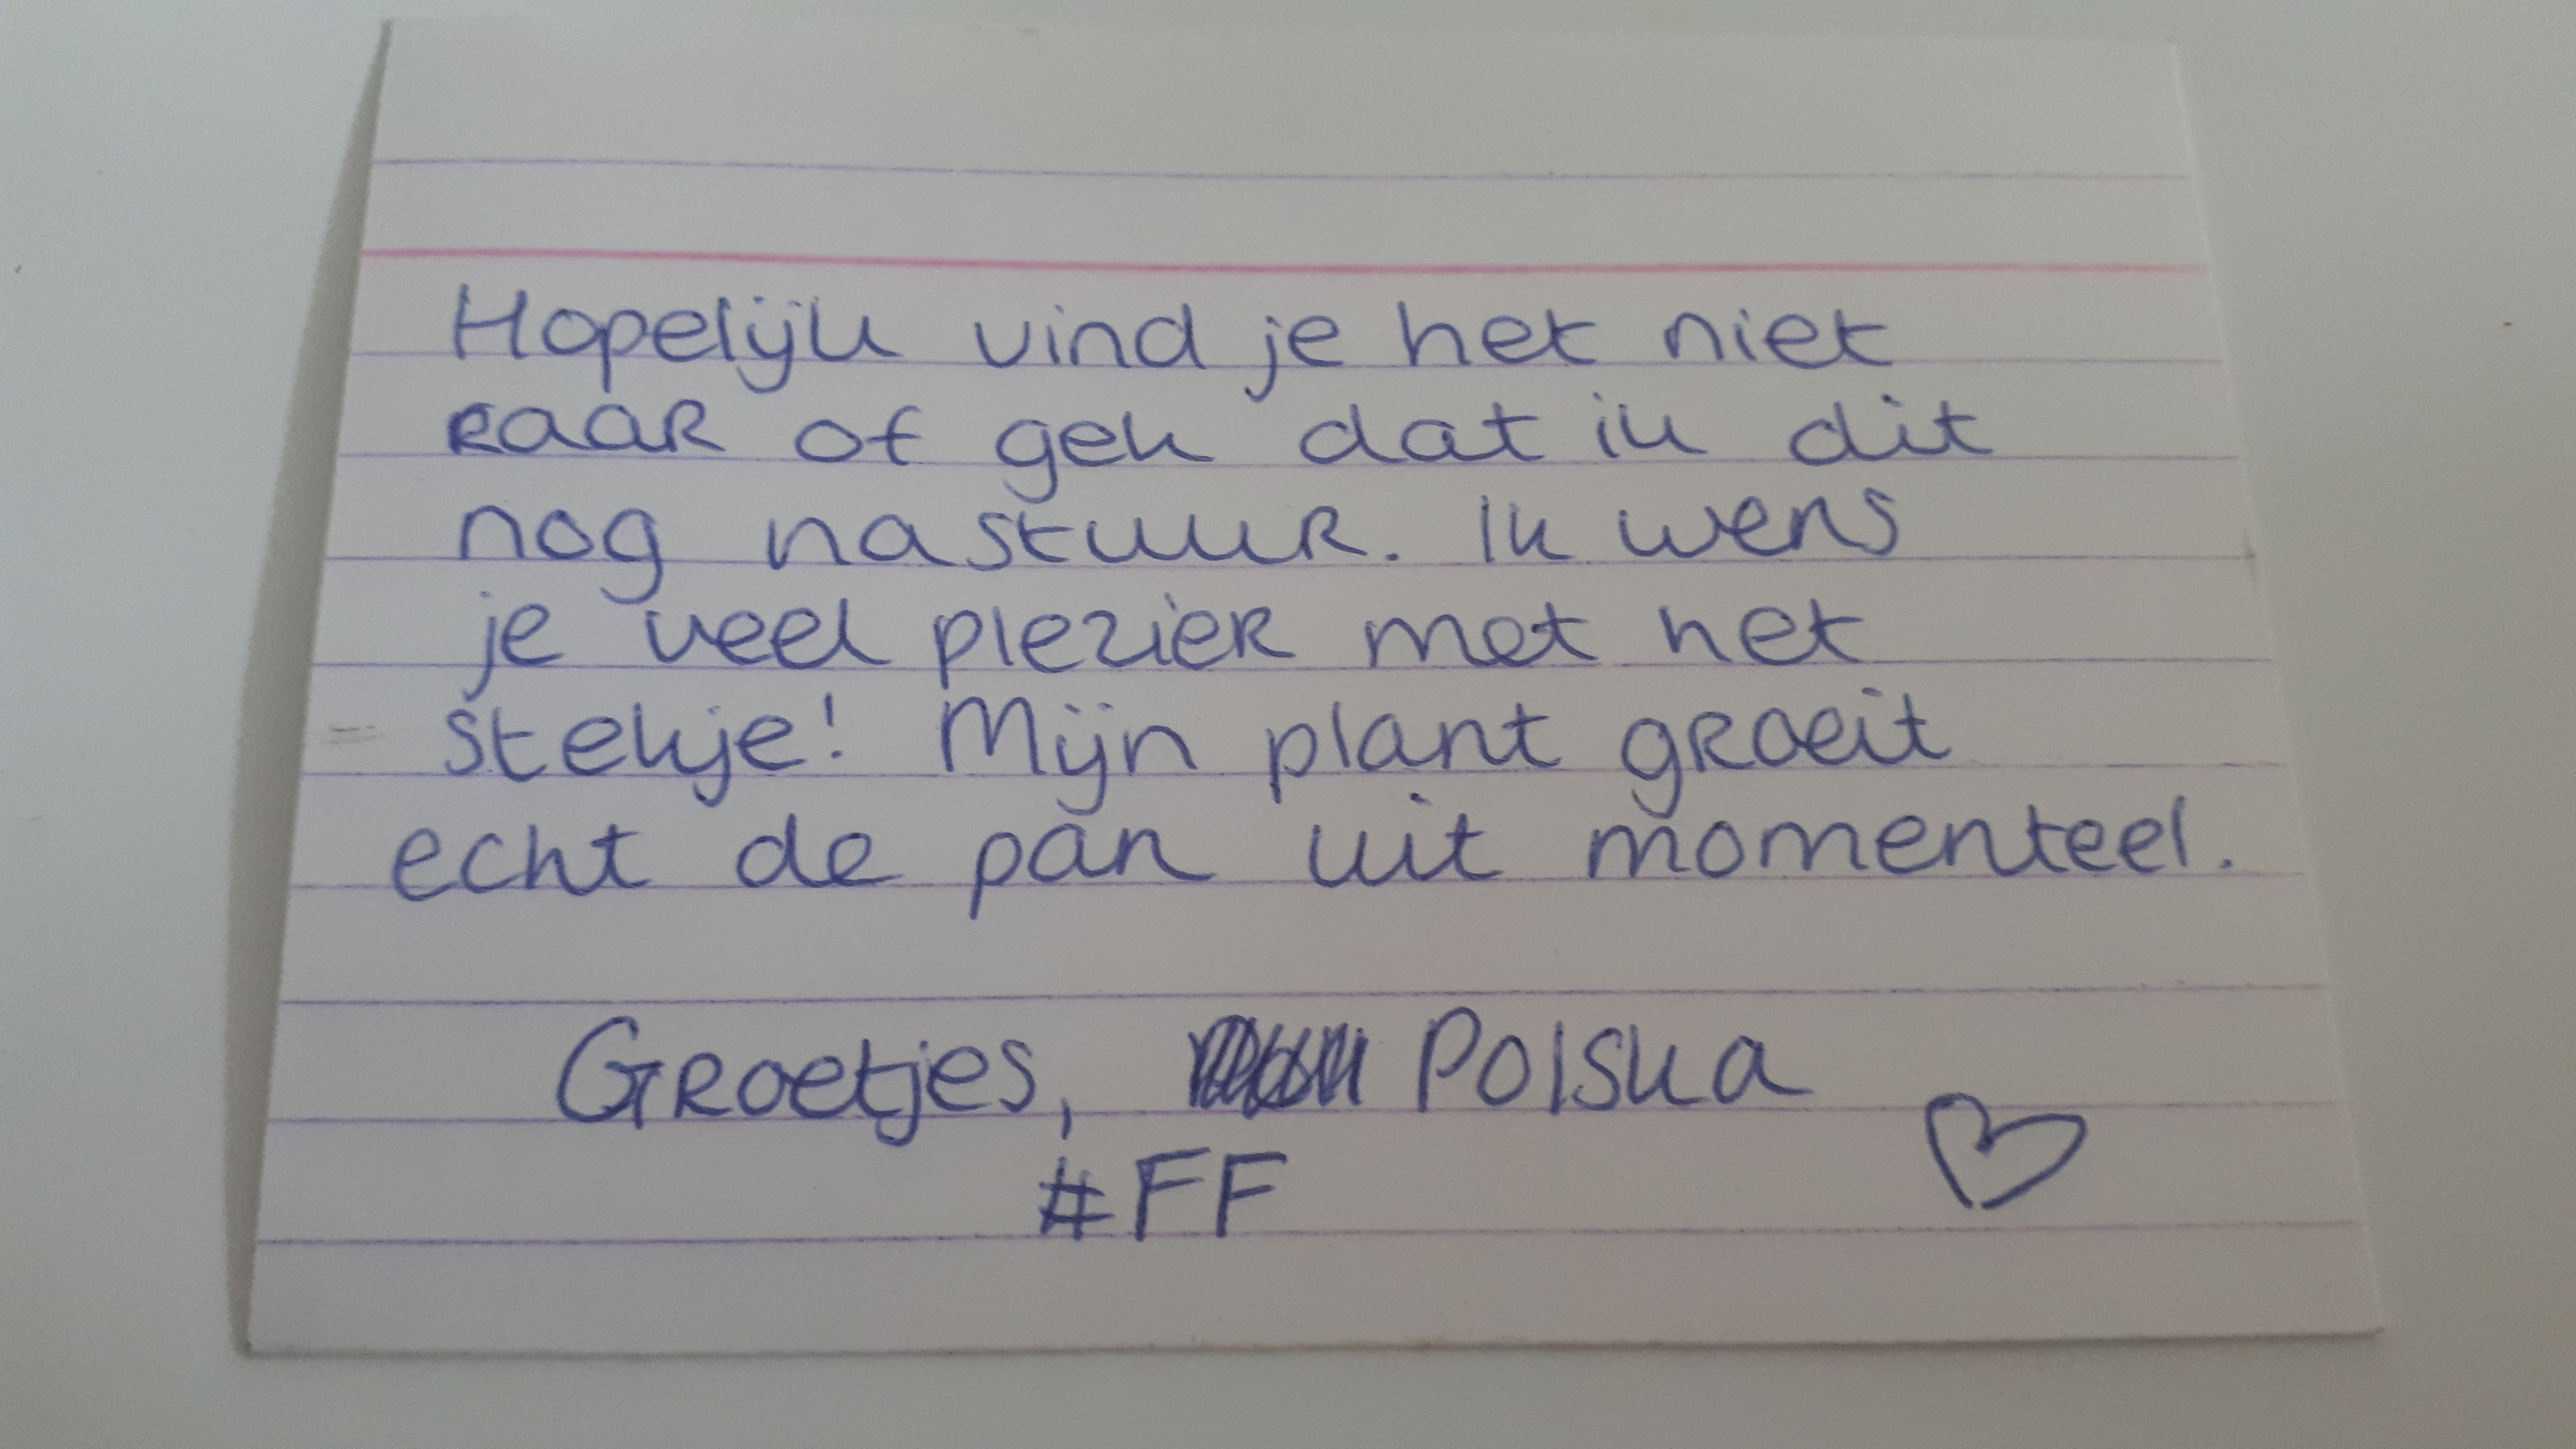 Hopelijk vind je het niet
raar of gek dat ik dit
nog nastuur. Ik wens
je veel plezier met het
stekje! Mijn plant groeit
echt de pan uit momenteel.
Groetjes, Polska
#FF